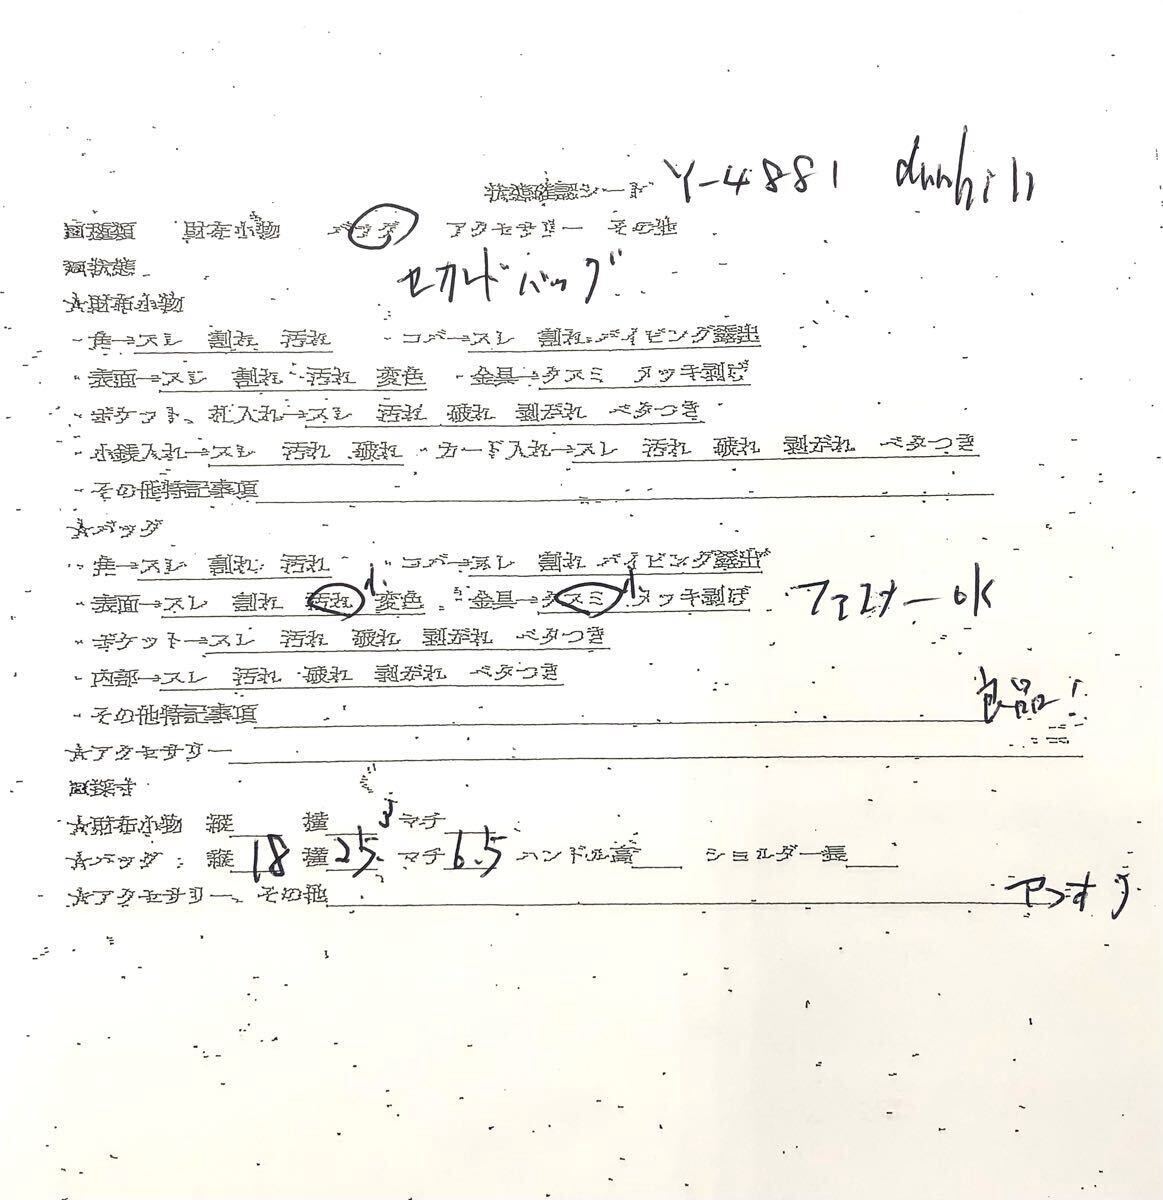 状態確認シート Y-4881 dunhill
□種類 財布小物 バッグ アクセサリー その他
セカンドバッグ
□状態
☆財布小物
・角→スレ 割れ 汚れ ・コバ→スレ 割れ パイピング露出
・表面→スレ 割れ 汚れ 変色 ・金具→クスミ メッキ剥げ
・ポケット、札入れ→スレ 汚れ 破れ 剥がれ ベタつき
・小銭入れ→スレ 汚れ 破れ ・カード入れ→スレ 汚れ 破れ 剥がれ ベタつき
・その他特記事項
☆バッグ
・角→スレ 割れ 汚れ ・コバ→スレ 割れ パイピング露出
・表面→スレ 割れ 汚れ 小 変色 ・金具→クスミ 小 メッキ剥げ ・ファスナーok
・ポケット→スレ 汚れ 破れ 剥がれ ベタつき
・内部→スレ 汚れ 破れ 剥がれ ベタつき
・その他特記事項 良品!
☆アクセサリー
□採寸
☆財布小物 縦 横 マチ
☆バッグ 縦 18 横 25.5 マチ 6.5 ハンドル高 ショルダー長
☆アクセサリー、その他